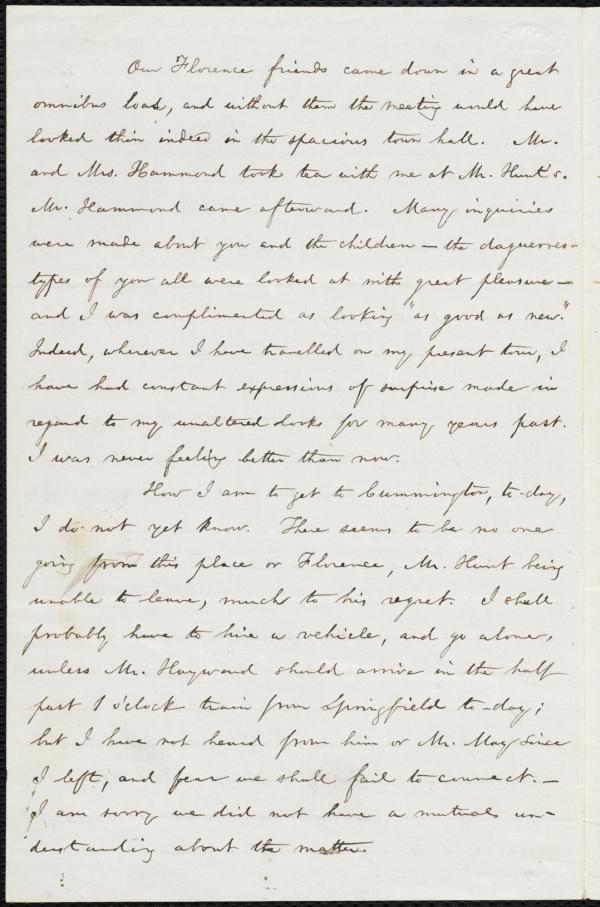 Our Florence friends came down in a great
omnibus load, and without them the meeting would have
looked thin indeed in the spacious town hall. Mr.
and Mrs. Hammond took tea with me at Mr. Hunt's.
Mr. Hammond came afterward. Many inquiries
were made about you and the children — the daguerreo-
types of you all were looked at with great pleasure —
and I was complimented as looking "as good as new."
Indeed, wherever I have travelled on my present tour, I
have had constant expressions of surprise made in
regard to my unaltered looks for many years past.
I was never feeling better than now.
How I am to get to Cummington, to-day,
I do not yet know. There seems to be no one
going from this place or Florence, Mr. Hunt being
unable to leave, much to his regret. I shall
probably have to hire a vehicle, and go alone,
unless Mr. Hayward should arrive in the half
past 1 o'clock train from Springfield to-day;
but I have not heard from him or Mr. May since
I left, and fear we shall fail to connect. —
I am sorry we did not have a mutual un-
derstanding about the matter.